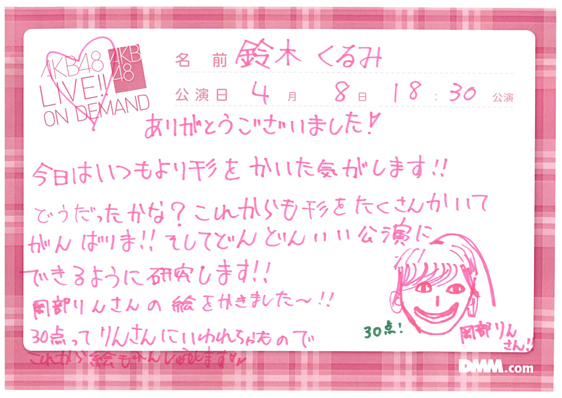 AKB48 LIVE!! ON DEMAND
AKB48
名前 鈴木くるみ
公演日 4月 8日 18:30 公演
ありがとうございました!
今日はいつもより形をかいた気がします!!
どうだったかな?これからも形をたくさんかいて
がんばりま!!そしてどんどんいい公演に
できるように研究します!!
岡部りんさんの絵をかきました〜!!
30点ってりんさんにいわれちゃたので
これから絵も
30点!
岡部りんさん!!
DMM.com